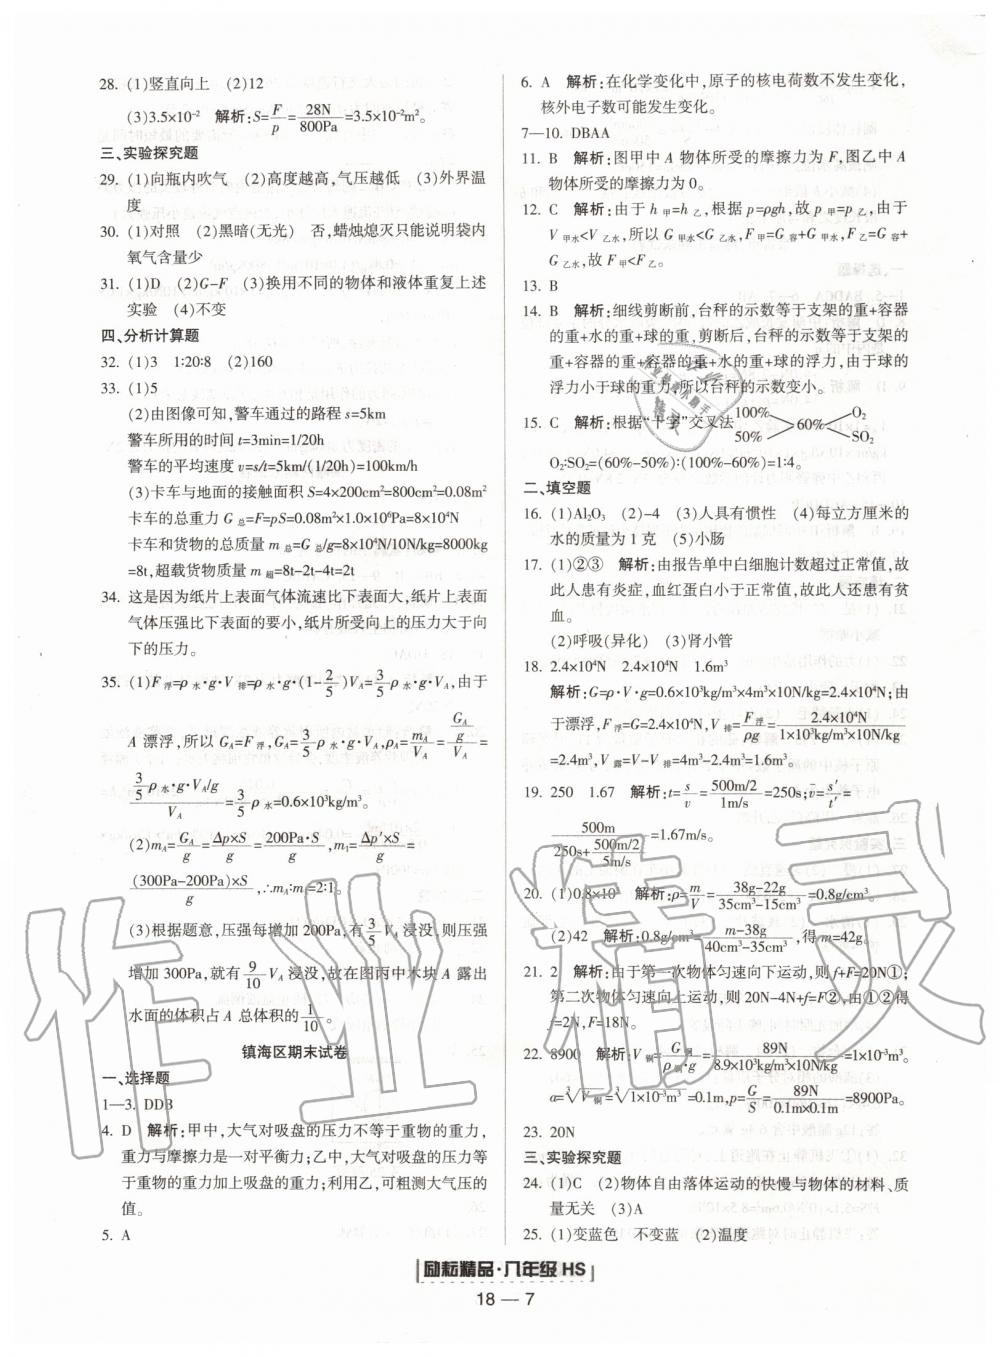 28. (1)竖直向上 (2)12
(3)3.5×10⁻² 解析:S=F/p=28N/800Pa=3.5×10⁻²m²。
三、实验探究题
29. (1)向瓶内吹气 (2)高度越高,气压越低 (3)外界温
度
30. (1)对照 (2)黑暗(无光) 否,蜡烛熄灭只能说明袋内
氧气含量少
31. (1)D (2)G-F (3)换用不同的物体和液体重复上述
实验 (4)不变
四、分析计算题
32. (1)3 1:20:8 (2)160
33. (1)5
(2)由图像可知,警车通过的路程 s=5km
警车所用的时间 t=3min=1/20h
警车的平均速度 v=s/t=5km/(1/20h)=100km/h
(3)卡车与地面的接触面积 S=4×200cm²=800cm²=0.08m²
卡车的总重力 G总=F=pS=0.08m²×1.0×10⁶Pa=8×10⁴N
卡车和货物的总质量 m总=G总/g=8×10⁴N/10N/kg=8000kg
=8t,超载货物质量 m超=8t-2t-4t=2t
34. 这是因为纸片上表面气体流速比下表面大,纸片上表面
气体压强比下表面的要小,纸片所受向上的压力大于向
下的压力。
35. (1)F浮=ρ水·g·V排=ρ水·g·(1-2/5)V_A=3/5ρ水·g·V_A,由于
A 漂浮,所以 G_A=F浮,G_A=3/5ρ水·g·V_A,ρ_A=m_A/V_A=(G_A/g)/V_A=
(3/5ρ水·g·V_A/g)/V_A=3/5ρ水=0.6×10³kg/m³。
(2)m_A=G_A/g=Δp×S/g=200Pa·S/g,m₁=Δp′×S/g=
(300Pa-200Pa)×S/g,∴m_A:m₁=2:1。
(3)根据题意,压强每增加 200Pa,有3/5V_A浸没,则压强
增加 300Pa,就有9/10V_A浸没,故在图丙中木块 A 露出
水面的体积占 A 总体积的1/10。
镇海区期末试卷
一、选择题
1—3. DDB
4. D 解析:甲中,大气对吸盘的压力不等于重物的重力,
重力与摩擦力是一对平衡力;乙中,大气对吸盘的压力等
于重物的重力加上吸盘的重力;利用乙,可粗测大气压的
值。
5. A
6. A 解析:在化学变化中,原子的核电荷数不发生变化,
核外电子数可能发生变化。
7—10. DBAA
11. B 解析:图甲中 A 物体所受的摩擦力为 F,图乙中 A
物体所受的摩擦力为 0。
12. C 解析:由于 h甲=h乙,根据 p=ρgh,故 p甲=p乙,由于
V甲水<V乙水,所以 G甲水<G乙水,F甲=G容+G甲水,F乙=G容+
G乙水,故 F甲<F乙。
13. B
14. B 解析:细线剪断前,台秤的示数等于支架的重+容器
的重+水的重+球的重,剪断后,台秤的示数等于支架的
重+容器的重+容器的重+水的重+球的浮力,由于球的
浮力小于球的重力,所以台秤的示数变小。
15. C 解析:根据“十字”交叉法 100% 50% >60%< O₂ SO₂
O₂:SO₂=(60%-50%):(100%-60%)=1:4。
二、填空题
16. (1)Al₂O₃ (2)-4 (3)人具有惯性 (4)每立方厘米的
水的质量为 1 克 (5)小肠
17. (1)②③ 解析:由报告单中白细胞计数超过正常值,故
此人患有炎症,血红蛋白小于正常值,故此人还患有贫
血。
(2)呼吸(异化) (3)肾小管
18. 2.4×10⁴N 2.4×10⁴N 1.6m³
解析:G=ρ·V·g=0.6×10³kg/m³×4m³×10N/kg=2.4×10⁴N;由
于漂浮,F浮=G=2.4×10⁴N,V排=F浮/ρg=2.4×10⁴N/1×10³kg/m³×10N/kg
=2.4m³,V露=V-V排=4m³-2.4m³=1.6m³。
19. 250 1.67 解析:t=s/v=500m/2/1m/s=250s;v=s′/t′=
500m/(250s+(500m/2)/5m/s)=1.67m/s。
20. (1)0.8×10³ 解析:ρ=m/V=38g-22g/35cm³-15cm³=0.8g/cm³。
(2)42 解析:0.8g/cm³=m-38g/40cm³-35cm³,得 m=42g。
21. 2 解析:由于第一次物体匀速向下运动,则 f+F=20N①;
第二次物体匀速向上运动,则 20N-4N+f=F②,由①②得
f=2N,F=18N。
22. 8900 解析:V铜=G铜/ρ铜·g=89N/8.9×10³kg/m³×10N/kg=1×10⁻³m³,
a=³√V铜=³√1×10⁻³m³=0.1m,p=G/S=89N/0.1m×0.1m=8900Pa。
23. 20N
三、实验探究题
24. (1)C (2)物体自由落体运动的快慢与物体的材料、质
量无关 (3)A
25. (1)变蓝色 不变蓝 (2)温度
励耘精品·八年级 HS
18 — 7
作业精灵